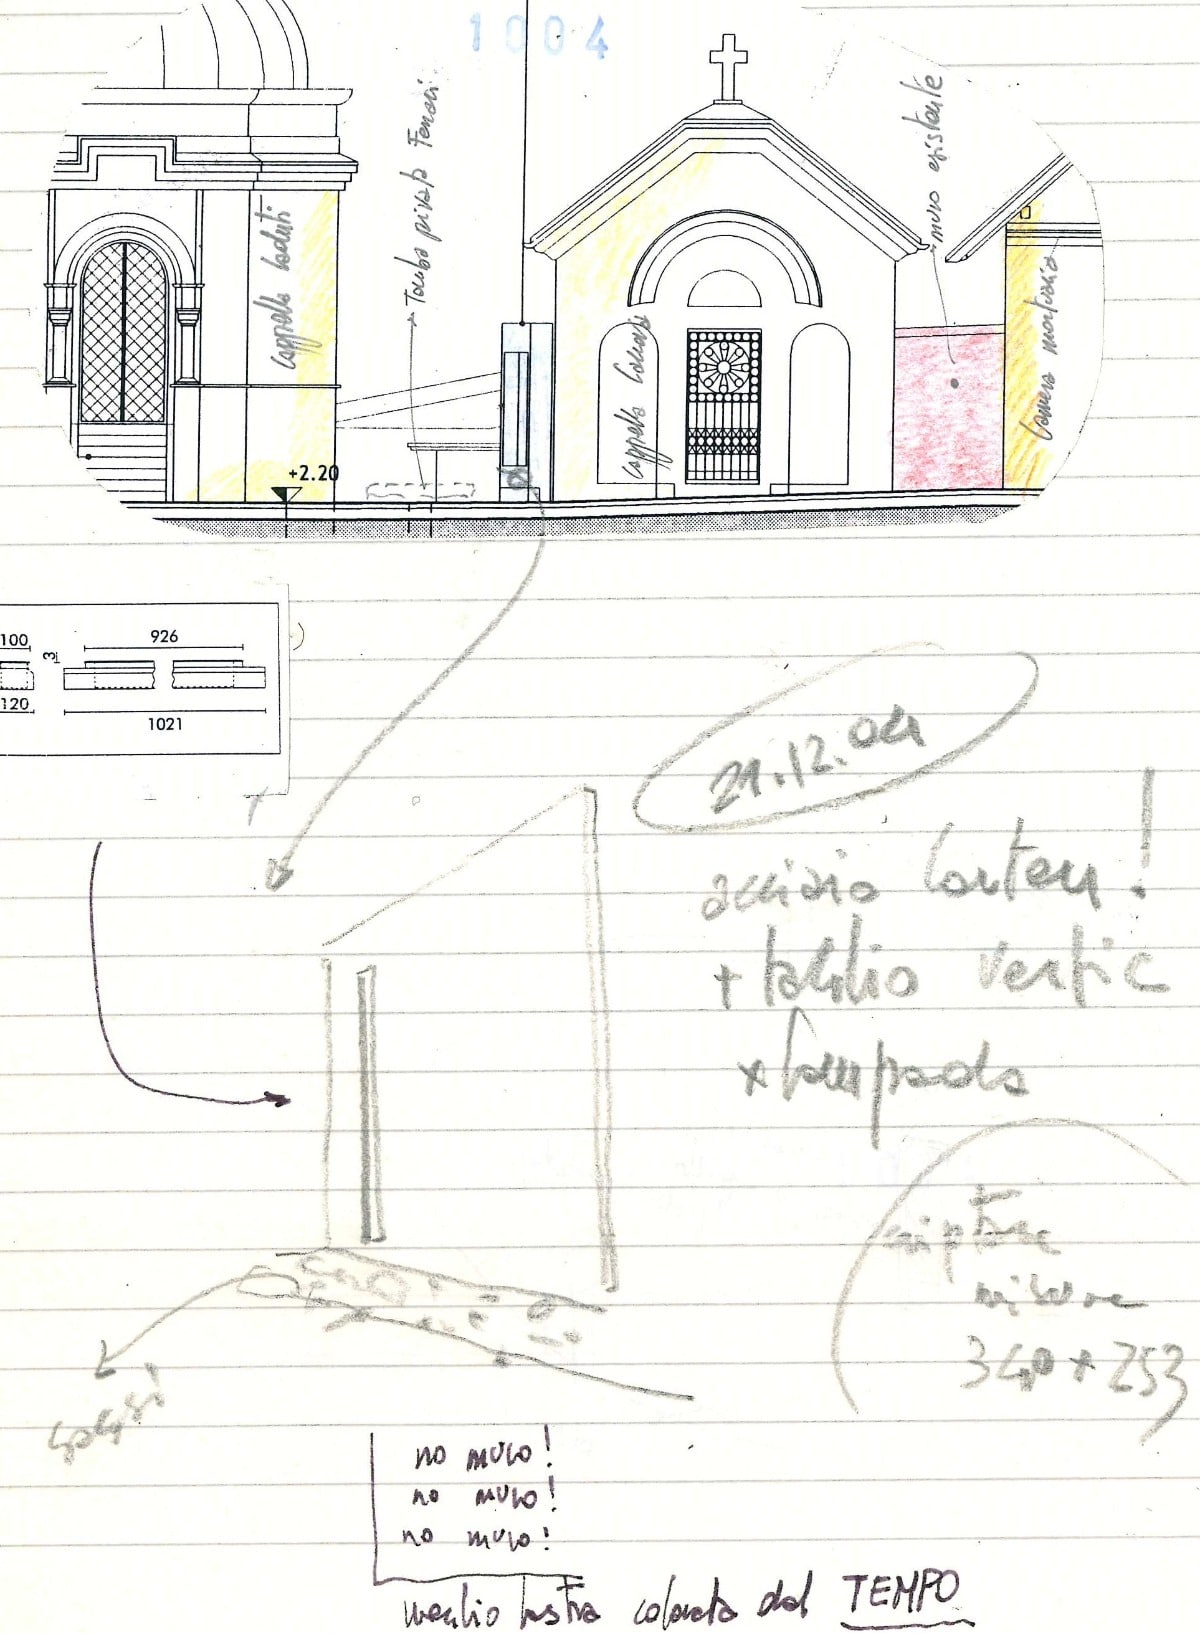 1004
Cappella Caduti
Tomba privata Ferrari
Cappella
muro esistente
Camera mortuaria
+2.20
100
3
926
120
1021
21.12.04
acciaio Corten!
+ taglio vertic
x lampada
misure
340 + 253
sassi
no muro!
no muro!
no muro!
meglio lastra colorata dal TEMPO